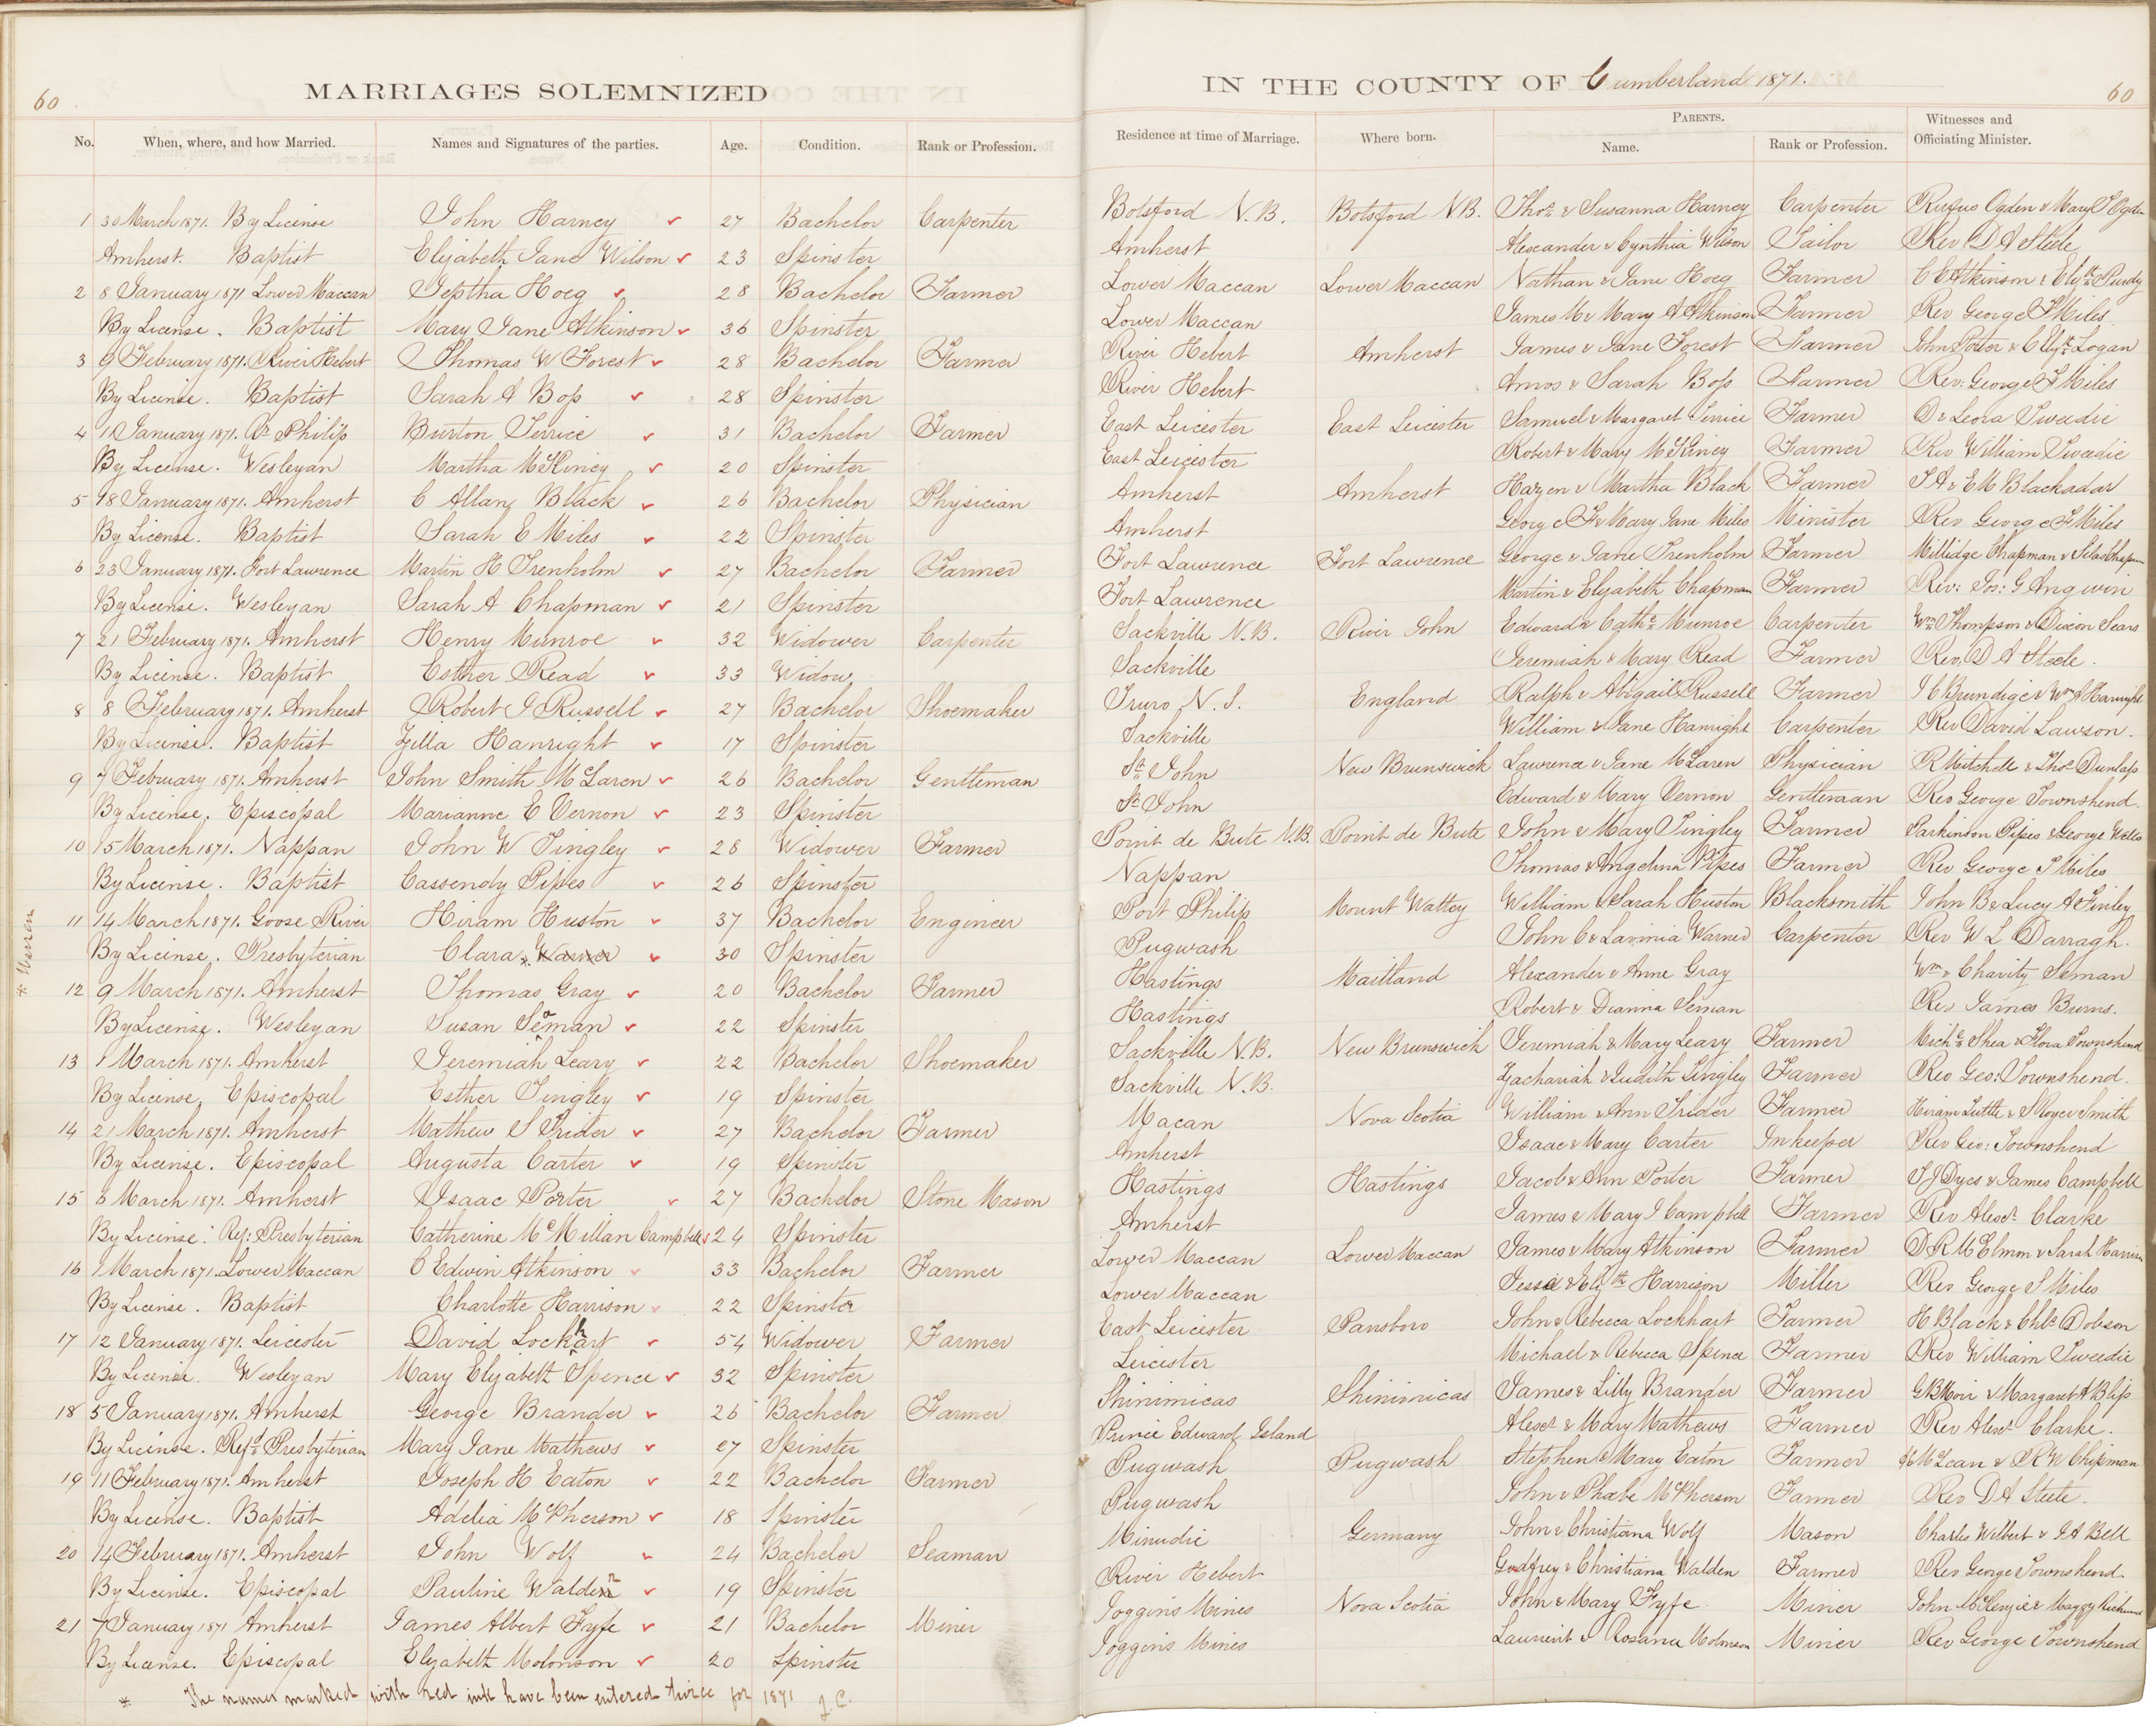 60
MARRIAGES SOLEMNIZED IN THE COUNTY OF Cumberland 1871.
60
PARENTS.
No. When, where, and how Married. Names and Signatures of the parties. Age. Condition. Rank or Profession. Residence at time of Marriage. Where born. Name. Rank or Profession. Witnesses and Officiating Minister.
1 30 March 1871. By License John Harney 27 Bachelor Carpenter Botsford N.B. Botsford N.B. Thos & Susanna Harney Carpenter Rufus Ogden & Mary J Ogden
Amherst. Baptist Elizabeth Jane Wilson 23 Spinster Amherst Alexander & Cynthia Wilson Tailor Rev D A Steele
2 8 January 1871 Lower Maccan Jeptha Hoeg 28 Bachelor Farmer Lower Maccan Lower Maccan Nathan & Jane Hoeg Farmer C E Atkinson & Elizth Purdy
By License. Baptist Mary Jane Atkinson 36 Spinster Lower Maccan James M & Mary A Atkinson Farmer Rev George F Miles
3 9 February 1871. River Hebert Thomas W Forest 28 Bachelor Farmer River Hebert Amherst James & Jane Forest Farmer John Porter & C Elizth Logan
By License. Baptist Sarah A Boss 28 Spinster River Hebert Amos & Sarah Boss Farmer Rev: George F Miles
4 11 January 1871. Philip Burton Terrice 31 Bachelor Farmer East Leicester East Leicester Samuel & Margaret Terrice Farmer D & Leora Tweedie
By License. Wesleyan Martha McKiney 20 Spinster East Leicester Robert & Mary McKiney Farmer Rev William Tweedie
5 18 January 1871. Amherst C Allan Black 26 Bachelor Physician Amherst Amherst Hazen & Martha Black Farmer T A & E M Blackadar
By License. Baptist Sarah E Miles 22 Spinster Amherst George F & Mary Jane Miles Minister Rev George F Miles
6 23 January 1871. Fort Lawrence Martin H Trenholm 27 Bachelor Farmer Fort Lawrence Fort Lawrence George & Jane Trenholm Farmer Millidge Chapman & Silas Chapman
By License. Wesleyan Sarah A Chapman 21 Spinster Fort Lawrence Martin & Elizabeth Chapman Farmer Rev: Jos: G Angwin
7 21 February 1871. Amherst Henry Munroe 32 Widower Carpenter Sackville N.B. River John Edward & Cathe Munroe Carpenter Wm Thompson & Dixon Sears
By License. Baptist Esther Read 33 Widow Sackville Jeremiah & Mary Read Farmer Rev. D A Steele.
8 8 February 1871. Amherst Robert J Russell 27 Bachelor Shoemaker Truro N.S. England Ralph & Abigail Russell Farmer J C Brundige & Wm A Hanright
By License. Baptist Zilla Hanright 17 Spinster Sackville William & Jane Hanright Carpenter Rev David Lawson.
9 7 February 1871. Amherst John Smith McLaren 26 Bachelor Gentleman St John New Brunswick Lawrence & Jane McLaren Physician R Mitchell & Thos Dunlap
By License. Episcopal Marianne E Vernon 23 Spinster St John Edward & Mary Vernon Gentleman Rev George Townshend.
10 15 March 1871. Nappan John W Tingley 28 Widower Farmer Point de Bute N.B. Point de Bute John & Mary Tingley Farmer Parkinson Pipes & George Wells
By License. Baptist Cassendy Pipes 26 Spinster Nappan Thomas & Angelina Pipes Farmer Rev George F Miles
11 14 March 1871. Goose River Hiram Huston 37 Bachelor Engineer Port Philip Mount Wattey William & Sarah Huston Blacksmith John B & Lucy A Finley
By License. Presbyterian Clara * Warner 30 Spinster Pugwash John C & Lavinia Warner Carpenter Rev W L Darragh.
12 9 March 1871. Amherst Thomas Gray 20 Bachelor Farmer Hastings Maitland Alexander & Anne Gray Wm & Charity Seman
By License. Wesleyan Susan Seaman 22 Spinster Hastings Robert & Dianna Seman Rev James Burns.
13 1 March 1871. Amherst Jeremiah Leary 22 Bachelor Shoemaker Sackville N.B. New Brunswick Jeremiah & Mary Leary Farmer Michl Shea & Flora Townshend
By License, Episcopal Esther Tingley 19 Spinster Sackville N.B. Zachariah & Judith Tingley Farmer Rev Geo: Townshend.
14 21 March 1871. Amherst Mathew S Trider 27 Bachelor Farmer Macan Nova Scotia William & Ann Trider Farmer Hiram Tuttle & S Royer Smith
By License. Episcopal Augusta Carter 19 Spinster Amherst Isaac & Mary Carter Inkeeper Rev Geo: Townshend
15 8 March 1871. Amherst Isaac Porter 27 Bachelor Stone Mason Hastings Hastings Jacob & Ann Porter Farmer T J Dyes & James Campbell
By License: Ref: Presbyterian Catherine McMillan Campbell 24 Spinster Amherst James & Mary J Campbell Farmer Rev Alexr Clarke
16 1 March 1871. Lower Maccan C Edwin Atkinson 33 Bachelor Farmer Lower Maccan Lower Maccan James & Mary Atkinson Farmer D R McElmon & Sarah Harrison
By License. Baptist Charlotte Harrison 22 Spinster Lower Maccan Jesse & Elizth Harrison Miller Rev George F Miles
17 12 January 1871. Leicester David Lockhart 54 Widower Farmer East Leicester Parsboro John & Rebecca Lockhart Farmer H Black & Chls Dobson
By License. Wesleyan Mary Elizabeth Spence 32 Spinster Leicester Michael & Rebecca Spence Farmer Rev William Tweedie
18 5 January 1871. Amherst George Brander 26 Bachelor Farmer Shinimicas Shinimicas James & Lilly Brander Farmer G B Moir & Margaret A Bliss
By License. Refd Presbyterian Mary Jane Mathews 27 Spinster Prince Edward Island Alexr & Mary Mathews Farmer Rev Alexr Clarke.
19 11 February 1871. Amherst Joseph H Eaton 22 Bachelor Farmer Pugwash Pugwash Stephen & Mary Eaton Farmer McLean & R W Chipman
By License. Baptist Adelia McPherson 18 Spinster Pugwash John & Phœbe McPherson Farmer Rev D A Steele.
20 14 February 1871. Amherst John Wolf 24 Bachelor Seaman Minudie Germany John & Christiana Wolf Mason Charles Wilbert & J A Bell
By License. Episcopal Pauline Walden 19 Spinster River Hebert Godfrey & Christiana Walden Farmer Rev George Townshend.
21 7 January 1871 Amherst James Albert Fyfe 21 Bachelor Miner Joggins Mines Nova Scotia John & Mary Fyfe Miner John McKenzie & Maggy
By License. Episcopal Elizabeth Molonson 20 Spinster Joggins Mines Laurient & Rosana Miner Rev George Townshend
* The names marked with red ink have been entered twice for 1871 J.C.